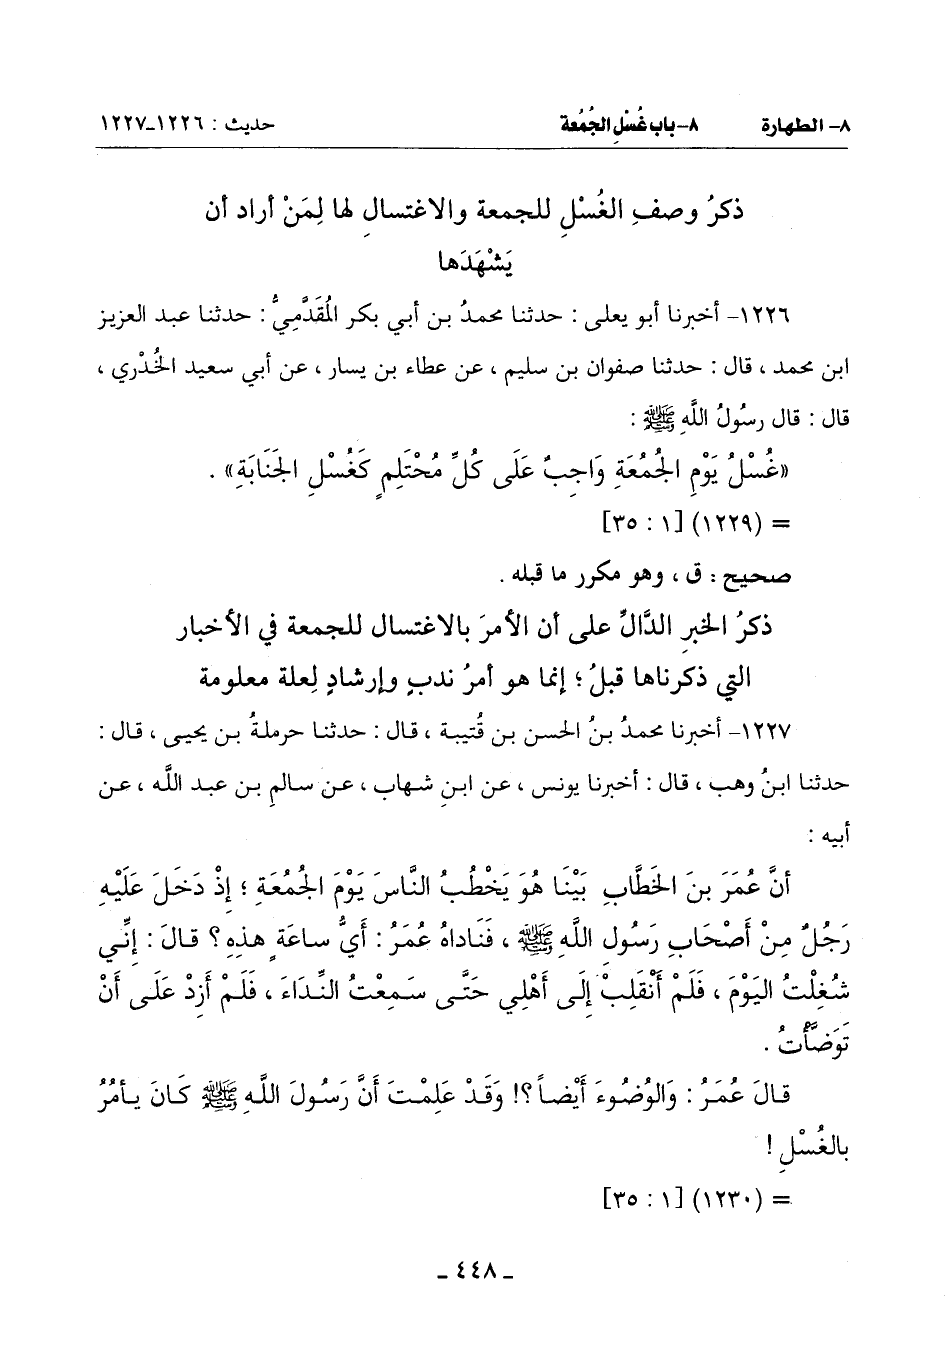 ٨- الطهارة ٨- باب غُسْلِ الجُمُعة حديث : ١٢٢٦-١٢٢٧
ذكرُ وصفِ الغُسْلِ للجمعة والاغتسالِ لها لِمَنْ أراد أن
يَشْهَدَها
١٢٢٦- أخبرنا أبو يعلى : حدثنا محمدُ بن أبي بكر المُقَدَّمِيُّ : حدثنا عبد العزيز
ابن محمد ، قال : حدثنا صفوان بن سليم ، عن عطاء بن يسار ، عن أبي سعيد الخُدْري ،
قال : قال رسُولُ اللَّهِ ﷺ :
«غُسْلُ يَوْمِ الجُمُعَةِ وَاجِبٌ عَلَى كُلِّ مُحْتَلِمٍ كَغُسْلِ الجَنَابَةِ» .
= (١٢٢٩) [١ : ٣٥]
صحيح : ق ، وهو مكرر ما قبله .
ذكرُ الخبرِ الدَّالِّ على أن الأمرَ بالاغتسال للجمعة في الأخبار
التي ذكرناها قبلُ ؛ إنما هو أمرُ ندبٍ وإرشادٍ لِعلة معلومة
١٢٢٧- أخبرنا محمدُ بنُ الحسن بن قُتيبة ، قال : حدثنا حرملةُ بن يحيى ، قال :
حدثنا ابنُ وهب ، قال : أخبرنا يونس ، عن ابنِ شهاب ، عن سالمِ بن عبد اللَّه ، عن
أبيه :
أنَّ عُمَرَ بنَ الخَطَّابِ بَيْنَا هُوَ يَخْطُبُ النَّاسَ يَوْمَ الجُمُعَةِ ؛ إذْ دَخَلَ عَلَيْهِ
رَجُلٌ مِنْ أَصْحَابِ رَسُولِ اللَّهِ ﷺ ، فَنَاداهُ عُمَرُ : أَيُّ ساعَةٍ هذِهِ ؟ قالَ : إنِّي
شُغِلْتُ اليَوْمَ ، فَلَمْ أَنْقَلِبْ إلَى أَهْلِي حَتَّى سَمِعْتُ النِّدَاءَ ، فَلَمْ أزِدْ عَلَى أَنْ
تَوَضَّأْتُ .
قالَ عُمَرُ : وَالوُضُوءَ أَيْضاً ؟! وَقَدْ عَلِمْتَ أَنَّ رَسُولَ اللَّهِ ﷺ كَانَ يأمُرُ
بالغُسْلِ !
= (١٢٣٠) [١ : ٣٥]
ـ ٤٤٨ ـ